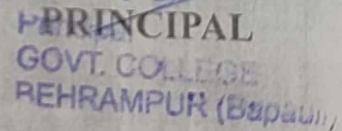 PRINCIPAL
GOVT. COLLEGE
REHRAMPUR (Bapauli)